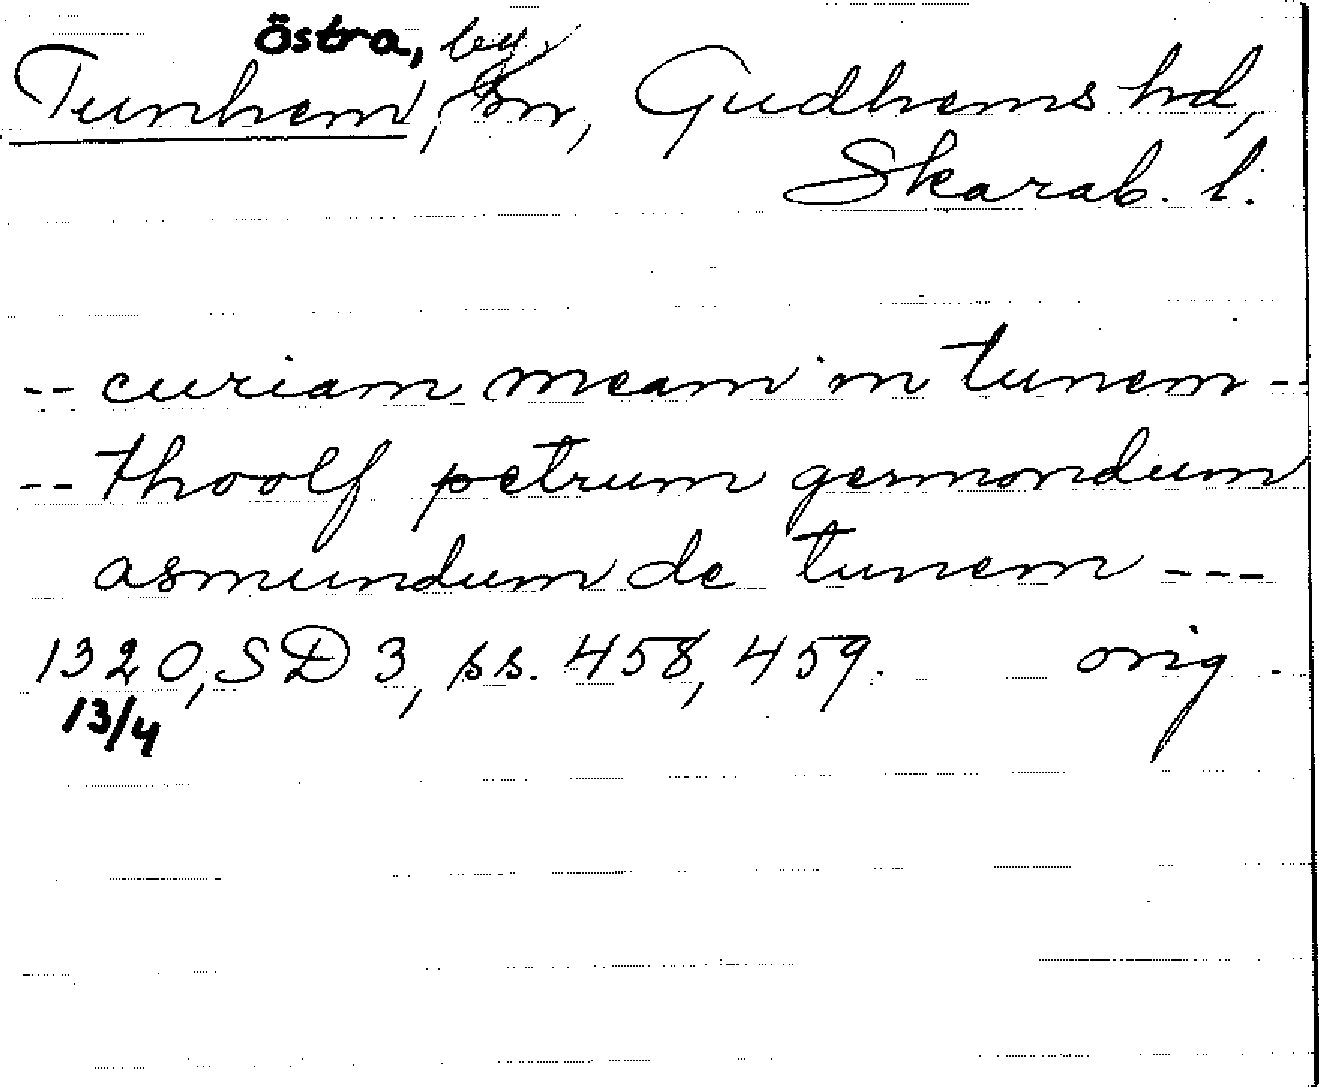 östra, by
Tunhem, sn, Gudhems hd,
Skarab. l.
-- curiam meam in tunem --
-- thoolf petrum germondum
asmundum de tunem ---
1320, SD 3, ss. 458, 459. orig.
13/4